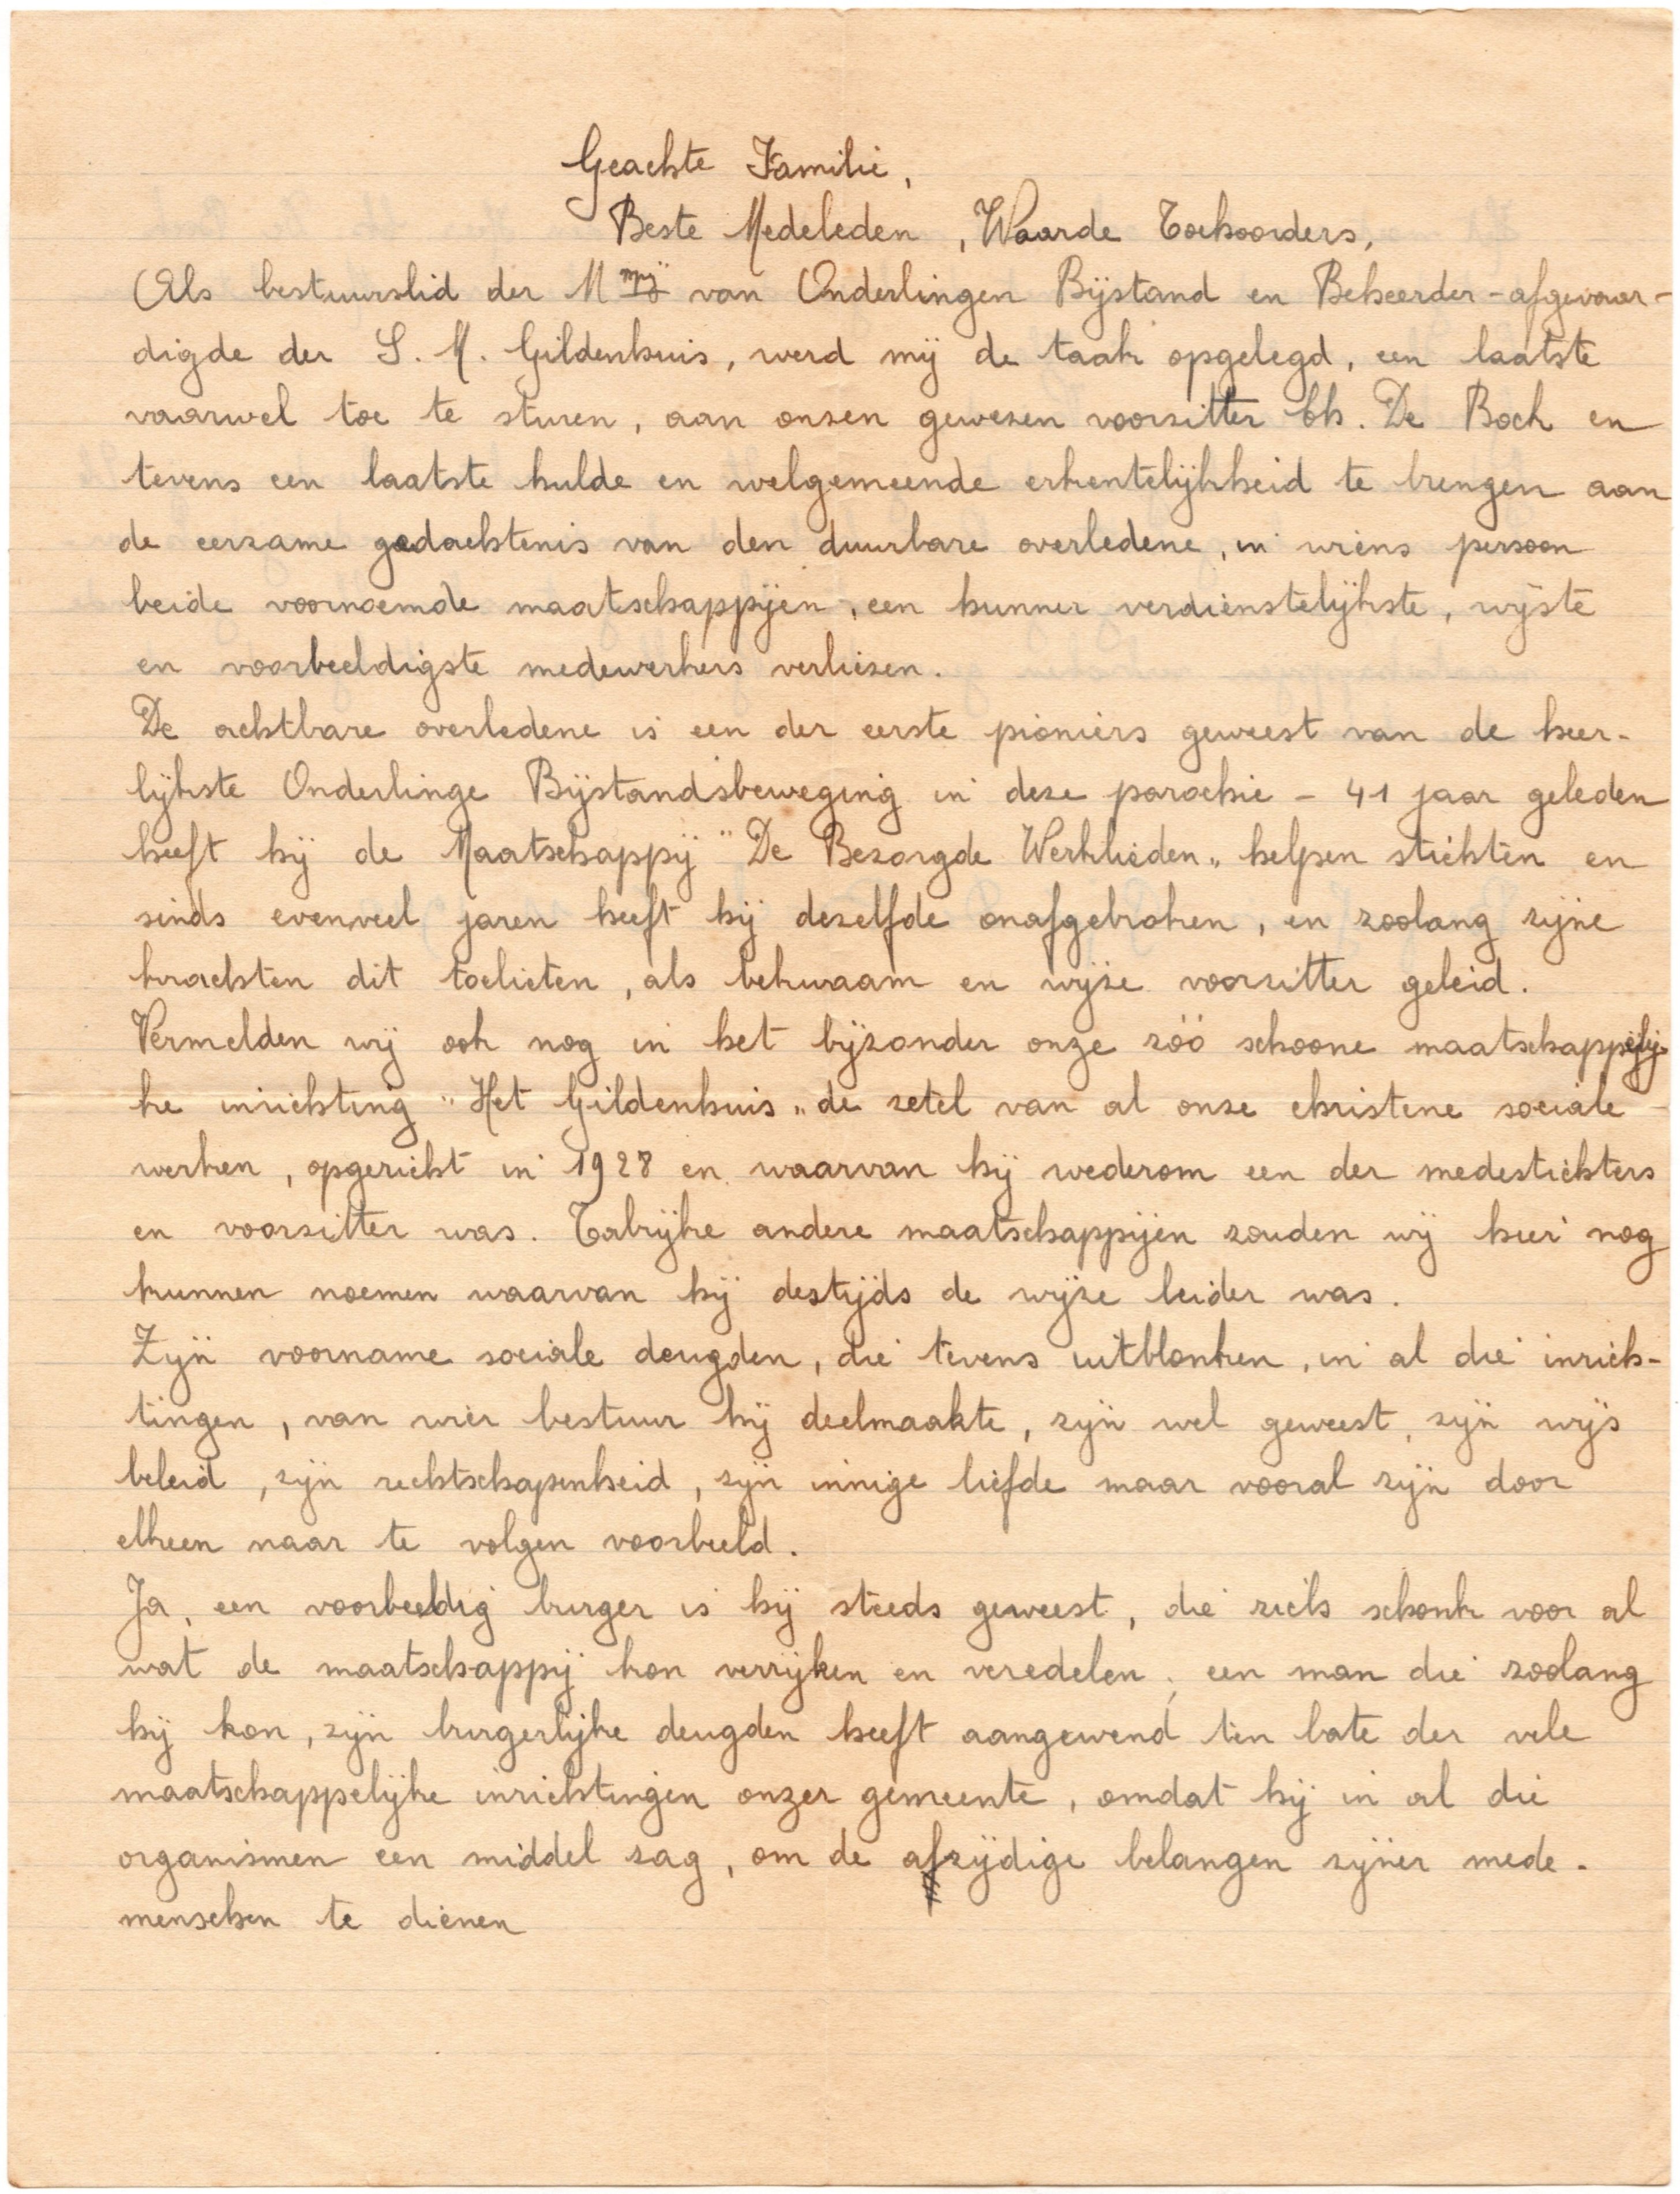 Geachte Familie,
Beste Medeleden, Waarde Toehoorders,
Als bestuurslid der Mpij van Onderlingen Bijstand en Beheerder-afgevaar-
digde der S. M. Gildenhuis, werd mij de taak opgelegd, een laatste
vaarwel toe te sturen, aan onzen gewezen voorzitter Ch. De Bock en
tevens een laatste hulde en welgemeende erkentelijkheid te brengen aan
de eerzame gedachtenis van den duurbare overledene, in wiens persoon
beide voornoemde maatschappijen, een hunner verdienstelijkste, wijste
en voorbeeldigste medewerkers verliezen.
De achtbare overledene is een der eerste pioniers geweest van de heer-
lijkste Onderlinge Bijstandsbeweging in deze parochie - 41 jaar geleden
heeft hij de Maatschappij "De Bezorgde Werklieden" helpen stichten en
sinds evenveel jaren heeft hij dezelfde onafgebroken, en zoolang zijne
krachten dit toelieten, als bekwaam en wijze voorzitter geleid.
Vermelden wij ook nog in het bijzonder onze zóó schoone maatschappelij-
ke inrichting "Het Gildenhuis" de zetel van al onze christene sociale
werken, opgericht in 1928 en waarvan hij wederom een der medestichters
en voorzitter was. Talrijke andere maatschappijen zouden wij hier nog
kunnen noemen waarvan hij destijds de wijze leider was.
Zijn voorname sociale deugden, die tevens uitblonken, in al die inrich-
tingen, van wier bestuur hij deelmaakte, zijn wel geweest, zijn wijs
beleid, zijn rechtschapenheid, zijn innige liefde maar vooral zijn door
elkeen naar te volgen voorbeeld.
Ja, een voorbeeldig burger is hij steeds geweest, die zich schonk voor al
wat de maatschappij kon verrijken en veredelen; een man die zoolang
hij kon, zijn burgerlijke deugden heeft aangewend ten bate der vele
maatschappelijke inrichtingen onzer gemeente, omdat hij in al die
organismen een middel zag, om de afzijdige belangen zijner mede-
menschen te dienen